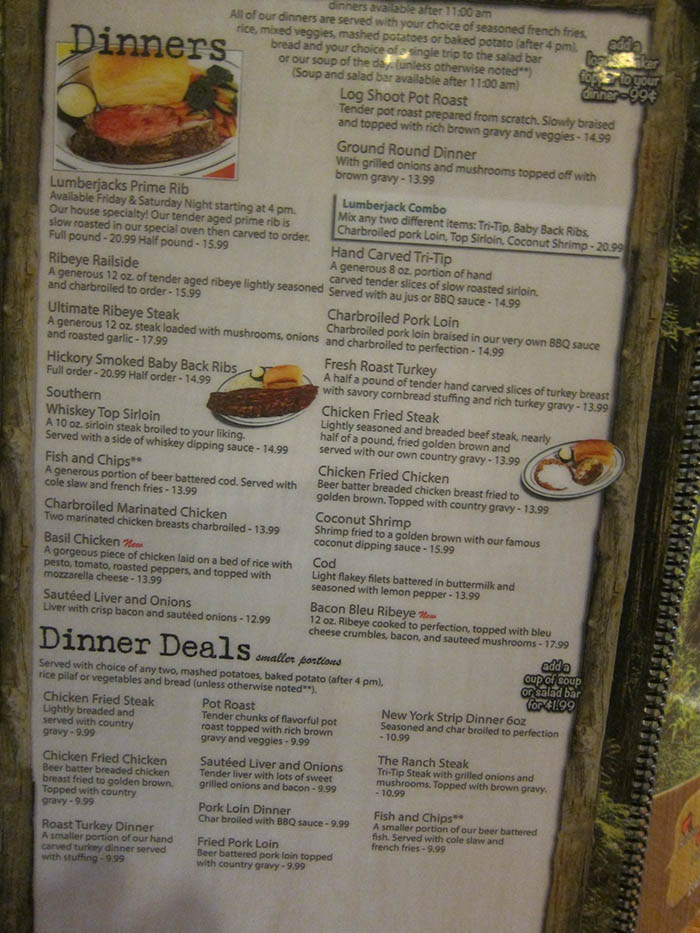 dinners available after 11:00 am
All of our dinners are served with your choice of seasoned french fries,
rice, mixed veggies, mashed potatoes or baked potato (after 4 pm),
bread and your choice of a single trip to the salad bar
or our soup of the day. (unless otherwise noted**)
(Soup and salad bar available after 11:00 am)
Dinners
add a
to your
dinner - 99¢
Lumberjacks Prime Rib
Available Friday & Saturday Night starting at 4 pm.
Our house specialty! Our tender aged prime rib is
slow roasted in our special oven then carved to order.
Full pound - 20.99 Half pound - 15.99
Ribeye Railside
A generous 12 oz. of tender aged ribeye lightly seasoned
and charbroiled to order - 15.99
Ultimate Ribeye Steak
A generous 12 oz. steak loaded with mushrooms, onions
and roasted garlic - 17.99
Hickory Smoked Baby Back Ribs
Full order - 20.99 Half order - 14.99
Southern
Whiskey Top Sirloin
A 10 oz. sirloin steak broiled to your liking.
Served with a side of whiskey dipping sauce - 14.99
Fish and Chips**
A generous portion of beer battered cod. Served with
cole slaw and french fries - 13.99
Charbroiled Marinated Chicken
Two marinated chicken breasts charbroiled - 13.99
Basil Chicken New
A gorgeous piece of chicken laid on a bed of rice with
pesto, tomato, roasted peppers, and topped with
mozzarella cheese - 13.99
Sautéed Liver and Onions
Liver with crisp bacon and sautéed onions - 12.99
Log Shoot Pot Roast
Tender pot roast prepared from scratch. Slowly braised
and topped with rich brown gravy and veggies - 14.99
Ground Round Dinner
With grilled onions and mushrooms topped off with
brown gravy - 13.99
Lumberjack Combo
Mix any two different items: Tri-Tip, Baby Back Ribs,
Charbroiled pork Loin, Top Sirloin, Coconut Shrimp - 20.99
Hand Carved Tri-Tip
A generous 8 oz. portion of hand
carved tender slices of slow roasted sirloin.
Served with au jus or BBQ sauce - 14.99
Charbroiled Pork Loin
Charbroiled pork loin braised in our very own BBQ sauce
and charbroiled to perfection - 14.99
Fresh Roast Turkey
A half a pound of tender hand carved slices of turkey breast
with savory cornbread stuffing and rich turkey gravy - 13.99
Chicken Fried Steak
Lightly seasoned and breaded beef steak, nearly
half of a pound, fried golden brown and
served with our own country gravy - 13.99
Chicken Fried Chicken
Beer batter breaded chicken breast fried to
golden brown. Topped with country gravy - 13.99
Coconut Shrimp
Shrimp fried to a golden brown with our famous
coconut dipping sauce - 15.99
Cod
Light flakey filets battered in buttermilk and
seasoned with lemon pepper - 13.99
Bacon Bleu Ribeye New
12 oz. Ribeye cooked to perfection, topped with bleu
cheese crumbles, bacon, and sauteed mushrooms - 17.99
Dinner Deals smaller portions
Served with choice of any two, mashed potatoes, baked potato (after 4 pm),
rice pilaf or vegetables and bread (unless otherwise noted**),
add a
cup of soup
or salad bar
for $1.99
Chicken Fried Steak
Lightly breaded and
served with country
gravy - 9.99
Chicken Fried Chicken
Beer batter breaded chicken
breast fried to golden brown.
Topped with country
gravy - 9.99
Roast Turkey Dinner
A smaller portion of our hand
carved turkey dinner served
with stuffing - 9.99
Pot Roast
Tender chunks of flavorful pot
roast topped with rich brown
gravy and veggies - 9.99
Sautéed Liver and Onions
Tender liver with lots of sweet
grilled onions and bacon - 9.99
Pork Loin Dinner
Char broiled with BBQ sauce - 9.99
Fried Pork Loin
Beer battered pork loin topped
with country gravy - 9.99
New York Strip Dinner 6oz
Seasoned and char broiled to perfection
- 10.99
The Ranch Steak
Tri-Tip Steak with grilled onions and
mushrooms. Topped with brown gravy.
- 10.99
Fish and Chips**
A smaller portion of our beer battered
fish. Served with cole slaw and
french fries - 9.99